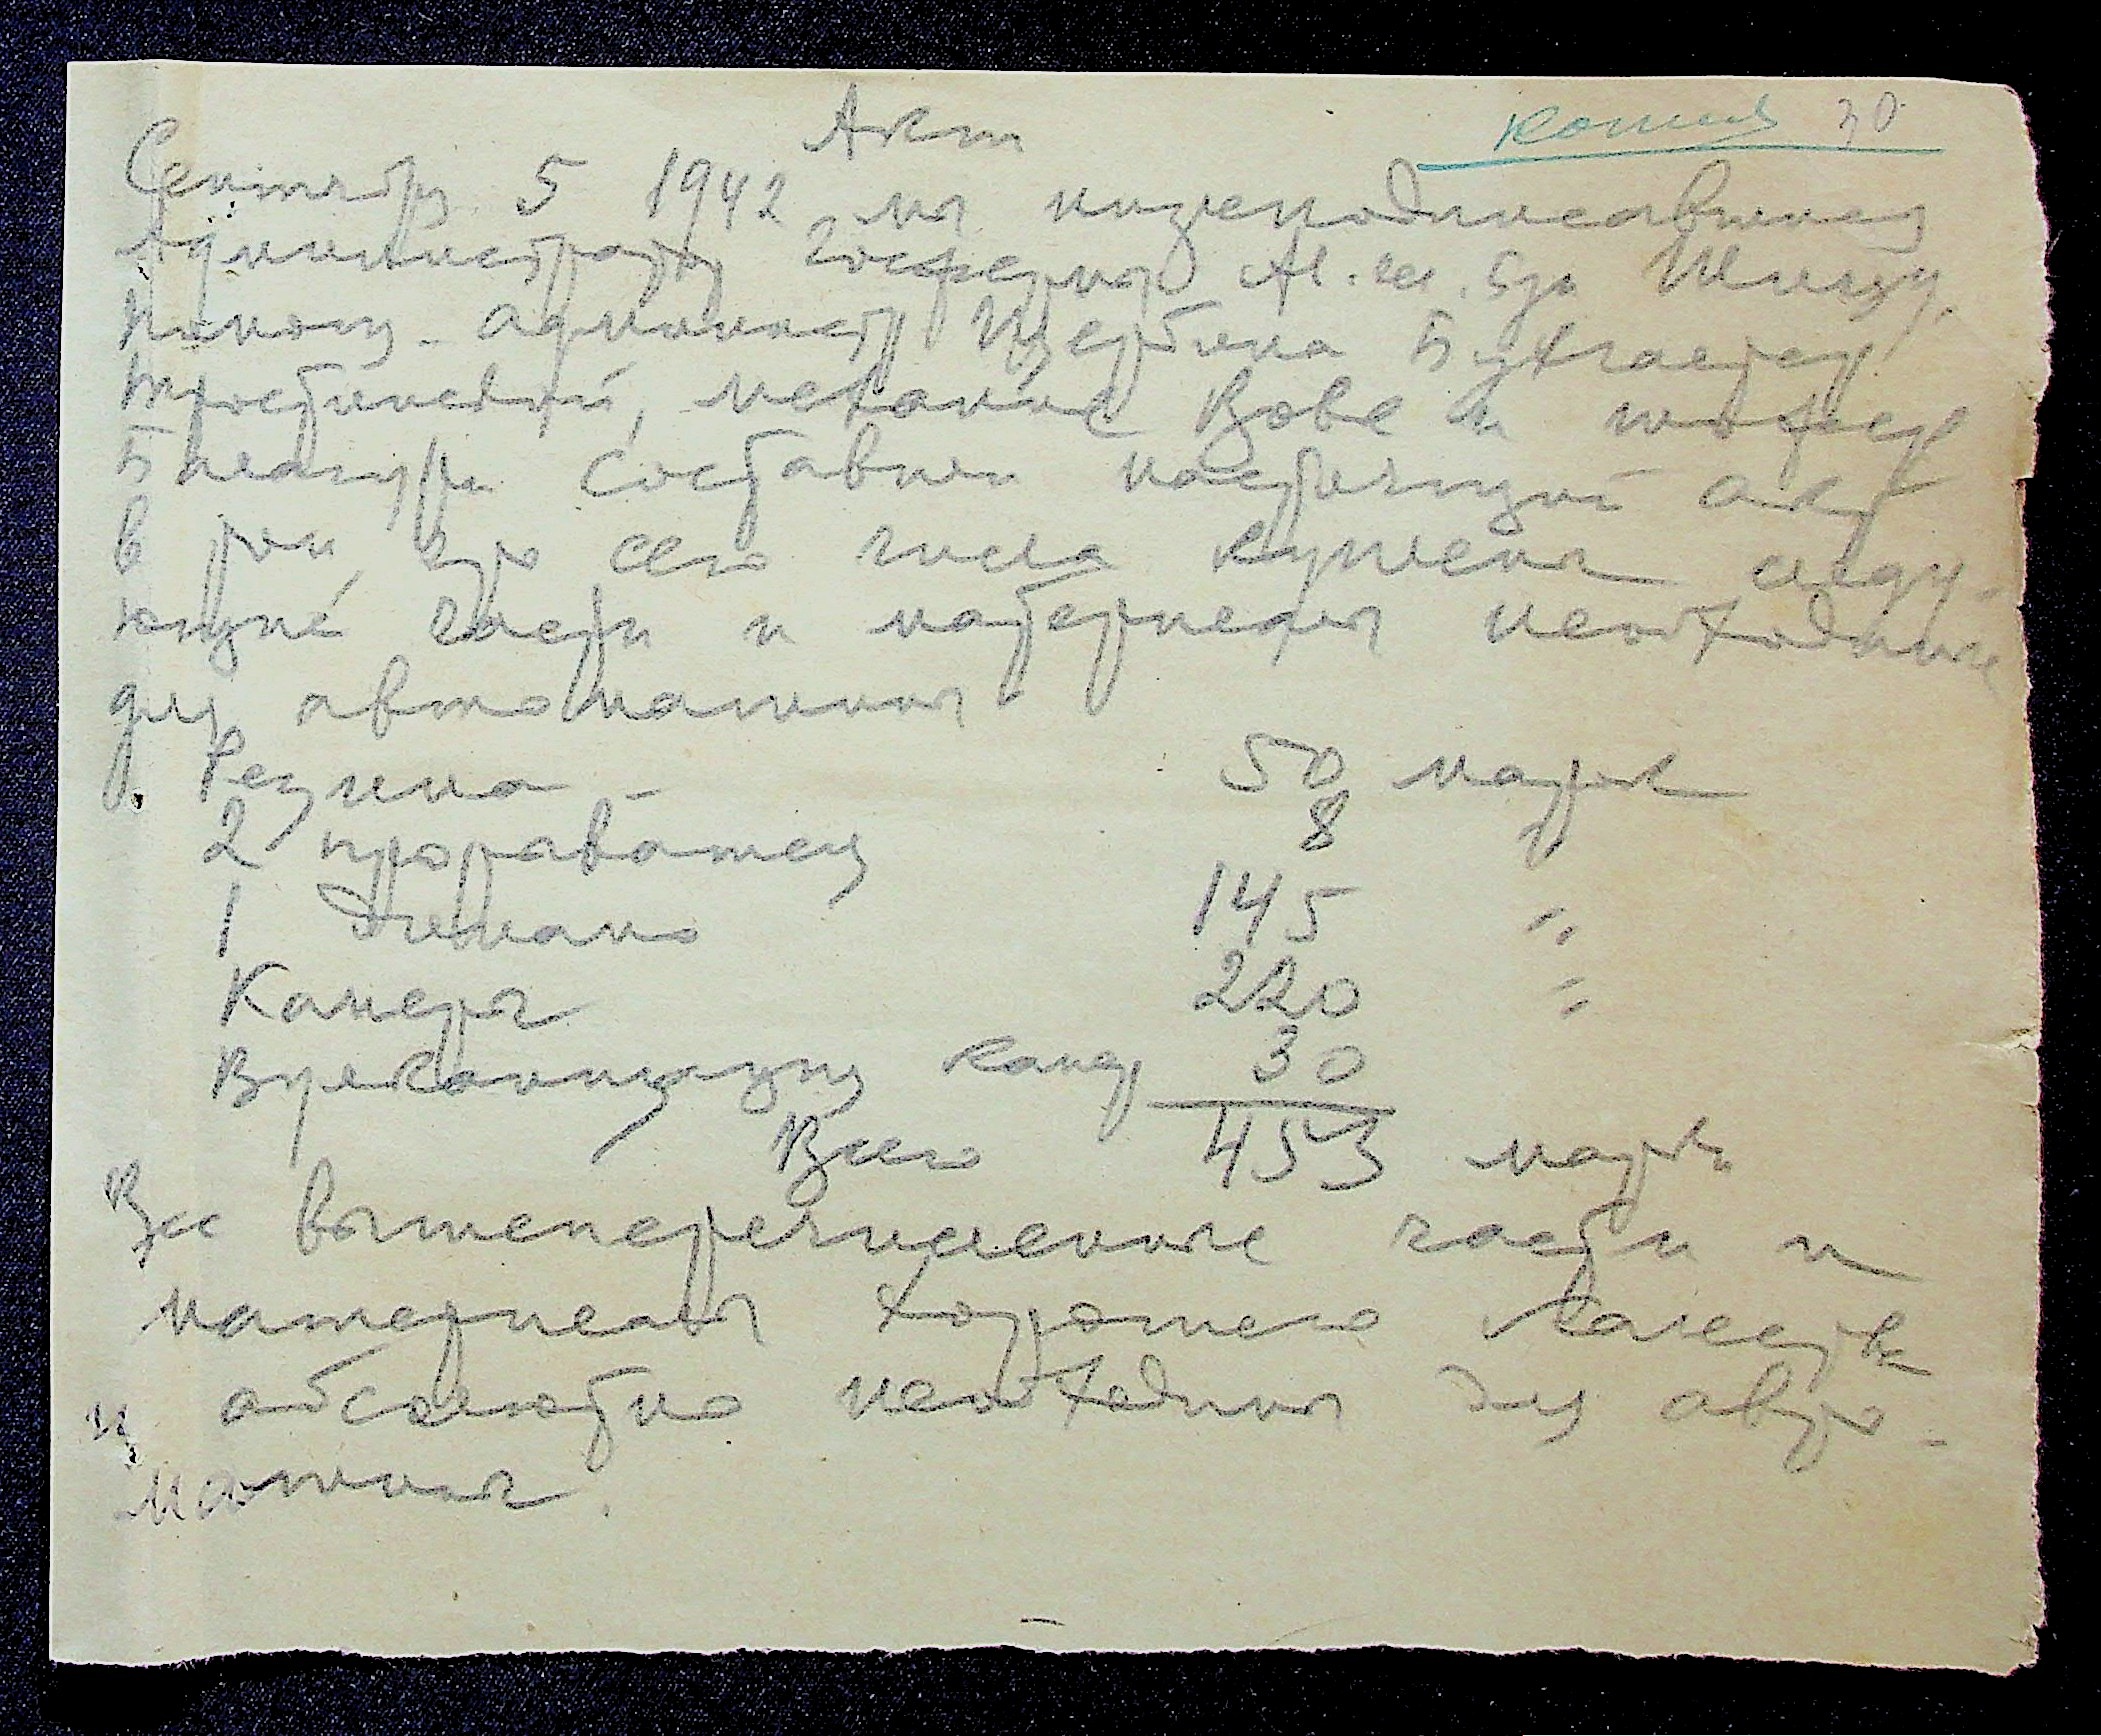 Акт
копия 30
Сентября 5 1942 мы нижеподписавшиеся
Администратор Госфермы
помощ. админист Щербина Бухгалтер
механик и шофер
составили настоящий акт
в том что сего числа куплены следу-
ющие части и материалы необходимые
для автомашины
Резина - 50 марок
2 8 "
1 Динамо 145 "
Камеры 220 "
Вулканизация камер 30
Всего 453 марки
Все вышеперечисленные части и
материалы хорошего качества
и абсолютно необходимы для авто-
машины.